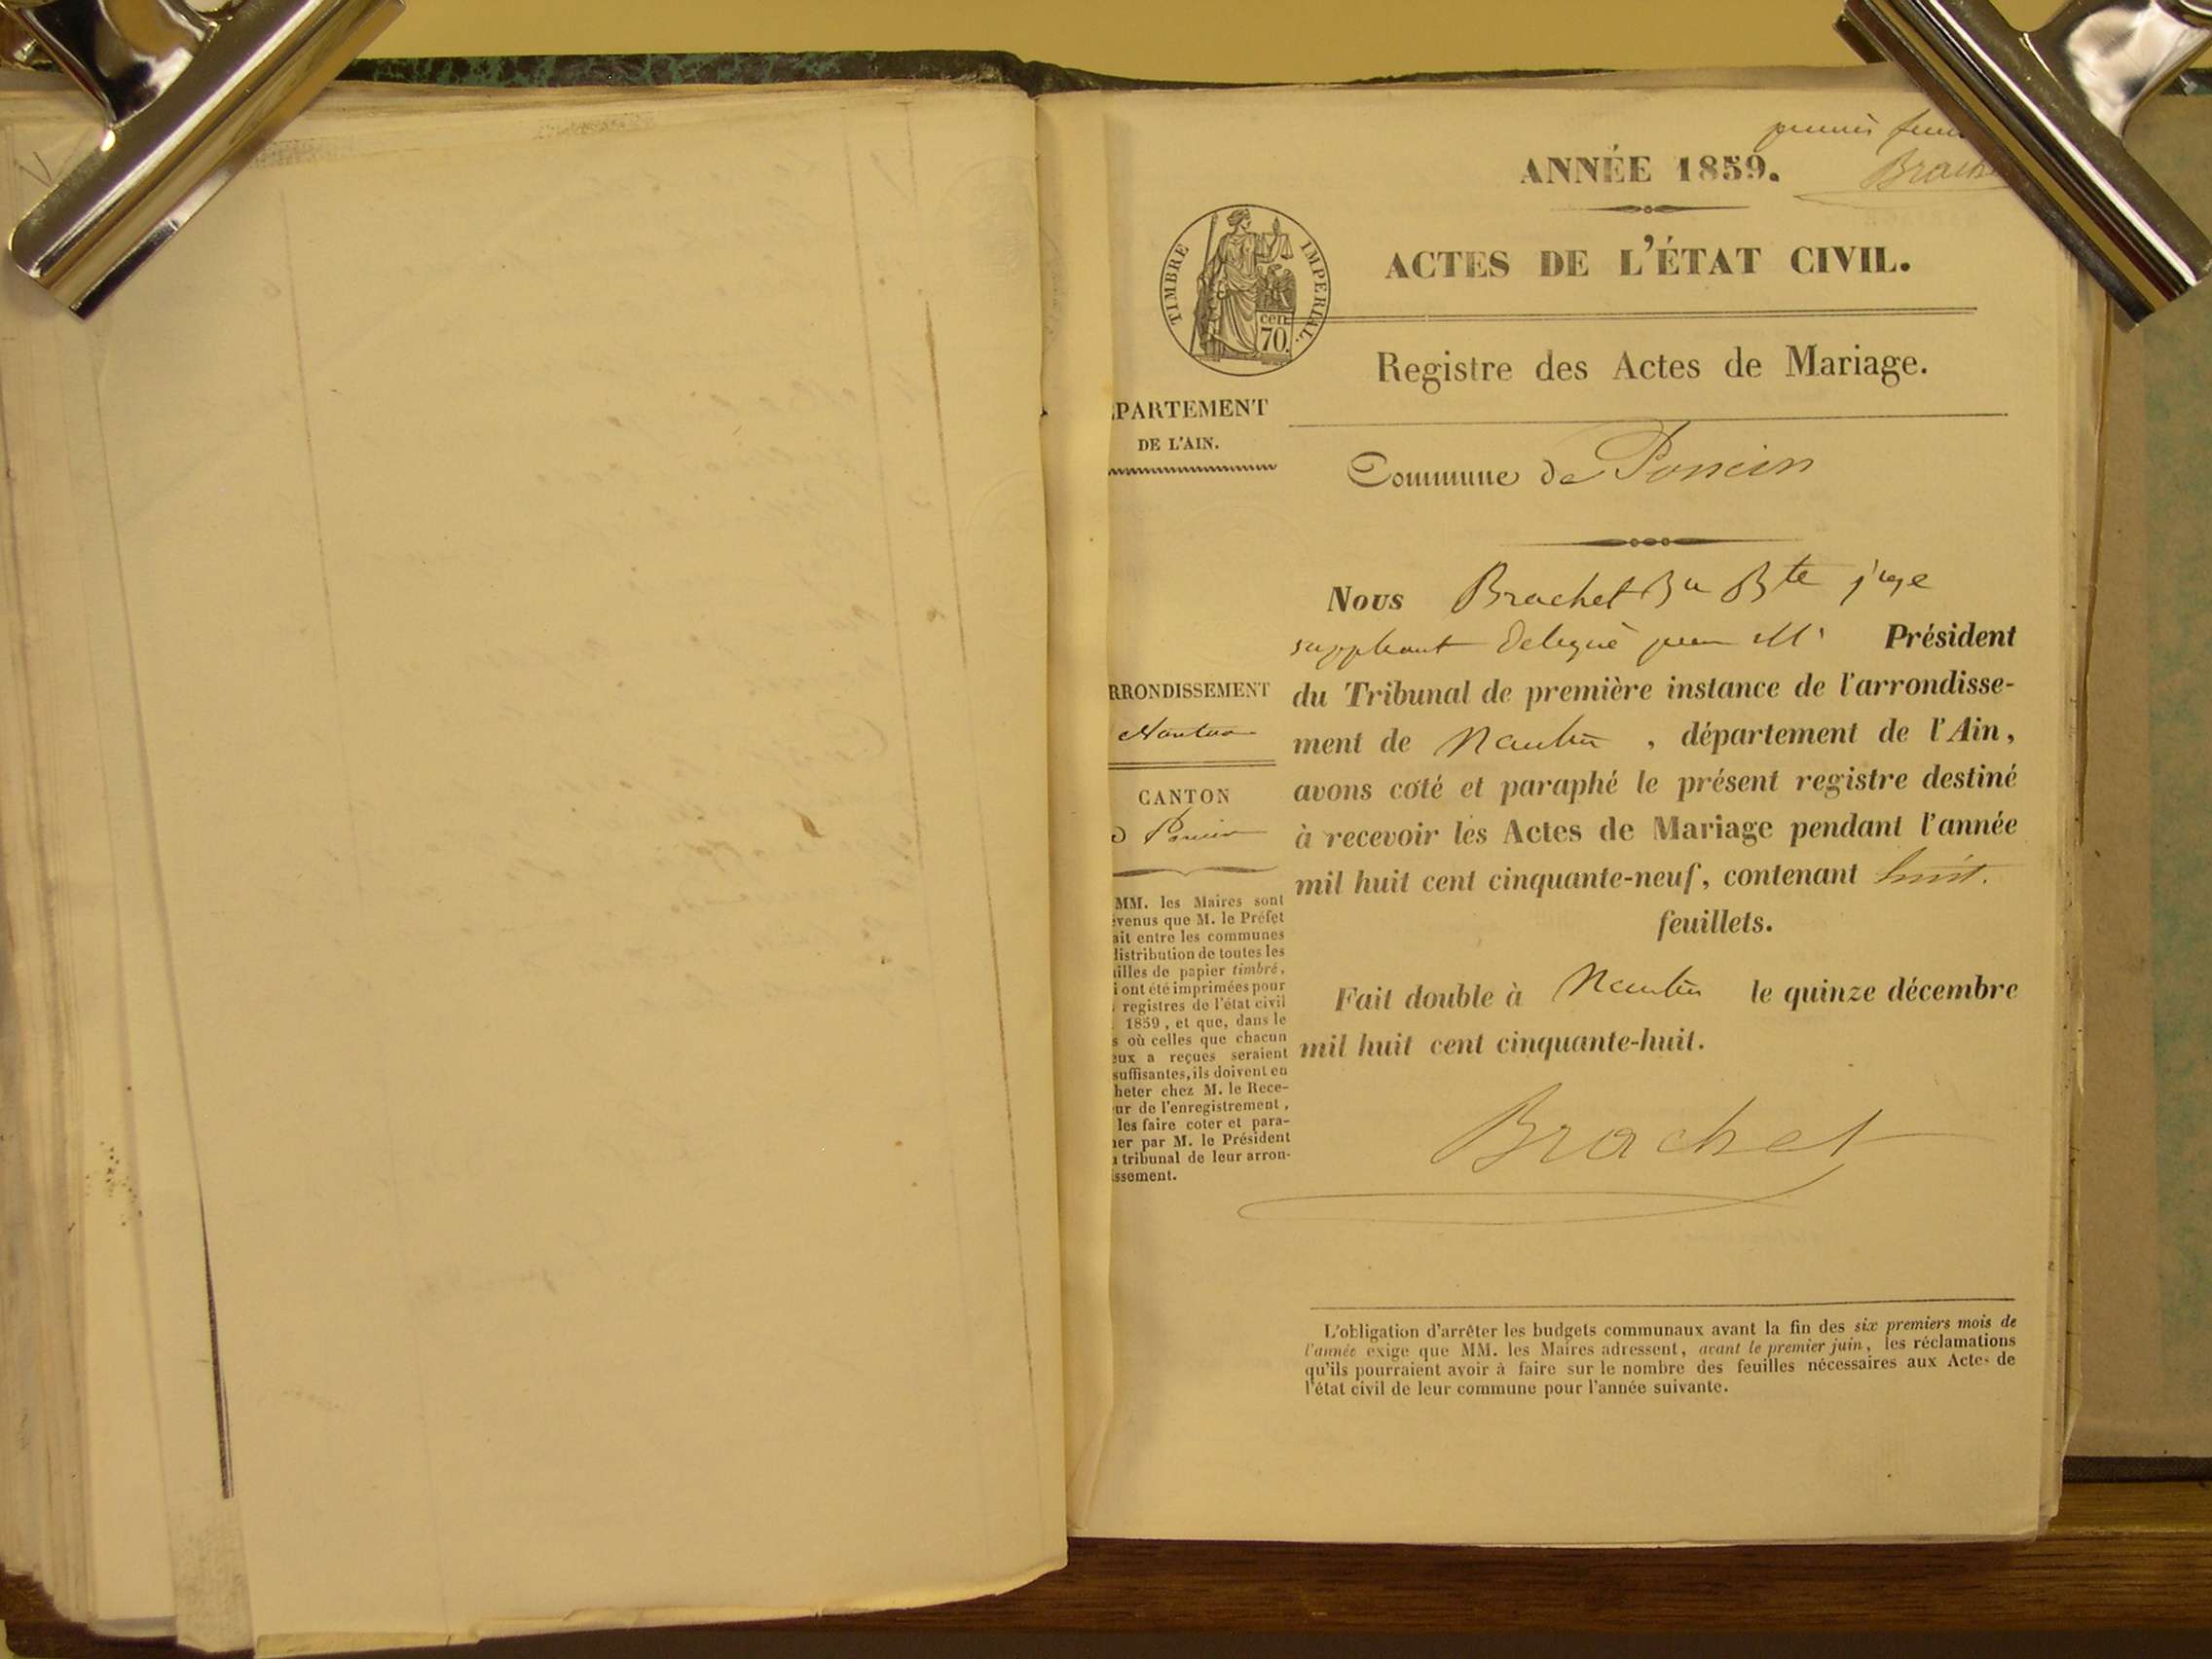 premier
Brachet
ANNÉE 1859.
ACTES DE L'ÉTAT CIVIL.
TIMBRE IMPERIAL.
cen
70.
Registre des Actes de Mariage.
PARTEMENT
DE L'AIN.
Commune de Poncin
Nous Brachet Bte juge
suppléant délégué par Mr Président
du Tribunal de première instance de l'arrondisse-
ment de Nantua , département de l'Ain,
avons coté et paraphé le présent registre destiné
à recevoir les Actes de Mariage pendant l'année
mil huit cent cinquante-neuf, contenant huit.
feuillets.
Fait double à Nantua le quinze décembre
mil huit cent cinquante-huit.
Brachet
RRONDISSEMENT
Nantua
CANTON
Poncin
MM. les Maires sont
venus que M. le Préfet
ait entre les communes
distribution de toutes les
illes de papier timbré,
i ont été imprimées pour
registres de l'état civil
1859, et que, dans le
s où celles que chacun
eux a reçues seraient
suffisantes, ils doivent en
heter chez M. le Rece-
ur de l'enregistrement,
les faire coter et para-
er par M. le Président
tribunal de leur arron-
ssement.
L'obligation d'arrêter les budgets communaux avant la fin des six premiers mois de
l'année exige que MM. les Maires adressent, avant le premier juin, les réclamations
qu'ils pourraient avoir à faire sur le nombre des feuilles nécessaires aux Actes de
l'état civil de leur commune pour l'année suivante.